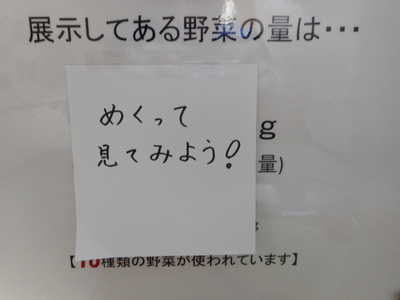 展示してある野菜の量は・・・
めくって
見てみよう!
g
量)
g
【10種類の野菜が使われています】